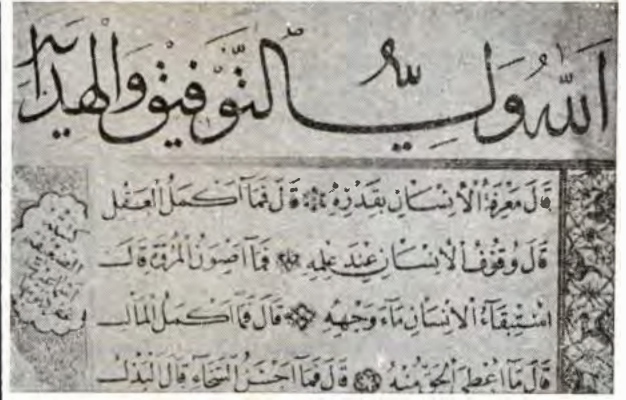 اَللّٰهُ وَلِيُّ التَّوْفِيْقِ وَالْهِدَا
قَالَ مَعْرِفَةُ الْاِنْسَانِ بِقَدْرِهِ قَالَ فَمَا اَكْمَلُ الْعَقْلِ
قَالَ وُقُوْفُ الْاِنْسَانِ عِنْدَ عِلْمِهِ فَمَا اَصْوَنُ الْمُرُوَّةِ قَالَ
اسْتِبْقَاءُ الْاِنْسَانِ مَاءَ وَجْهِهِ قَالَ فَمَا اَكْمَلُ الْمَالِ
قَالَ مَا اُعْطِيَ الْحَقُّ مِنْهُ قَالَ فَمَا اَحْسَنُ السَّخَاءِ قَالَ الْبَذْلُ